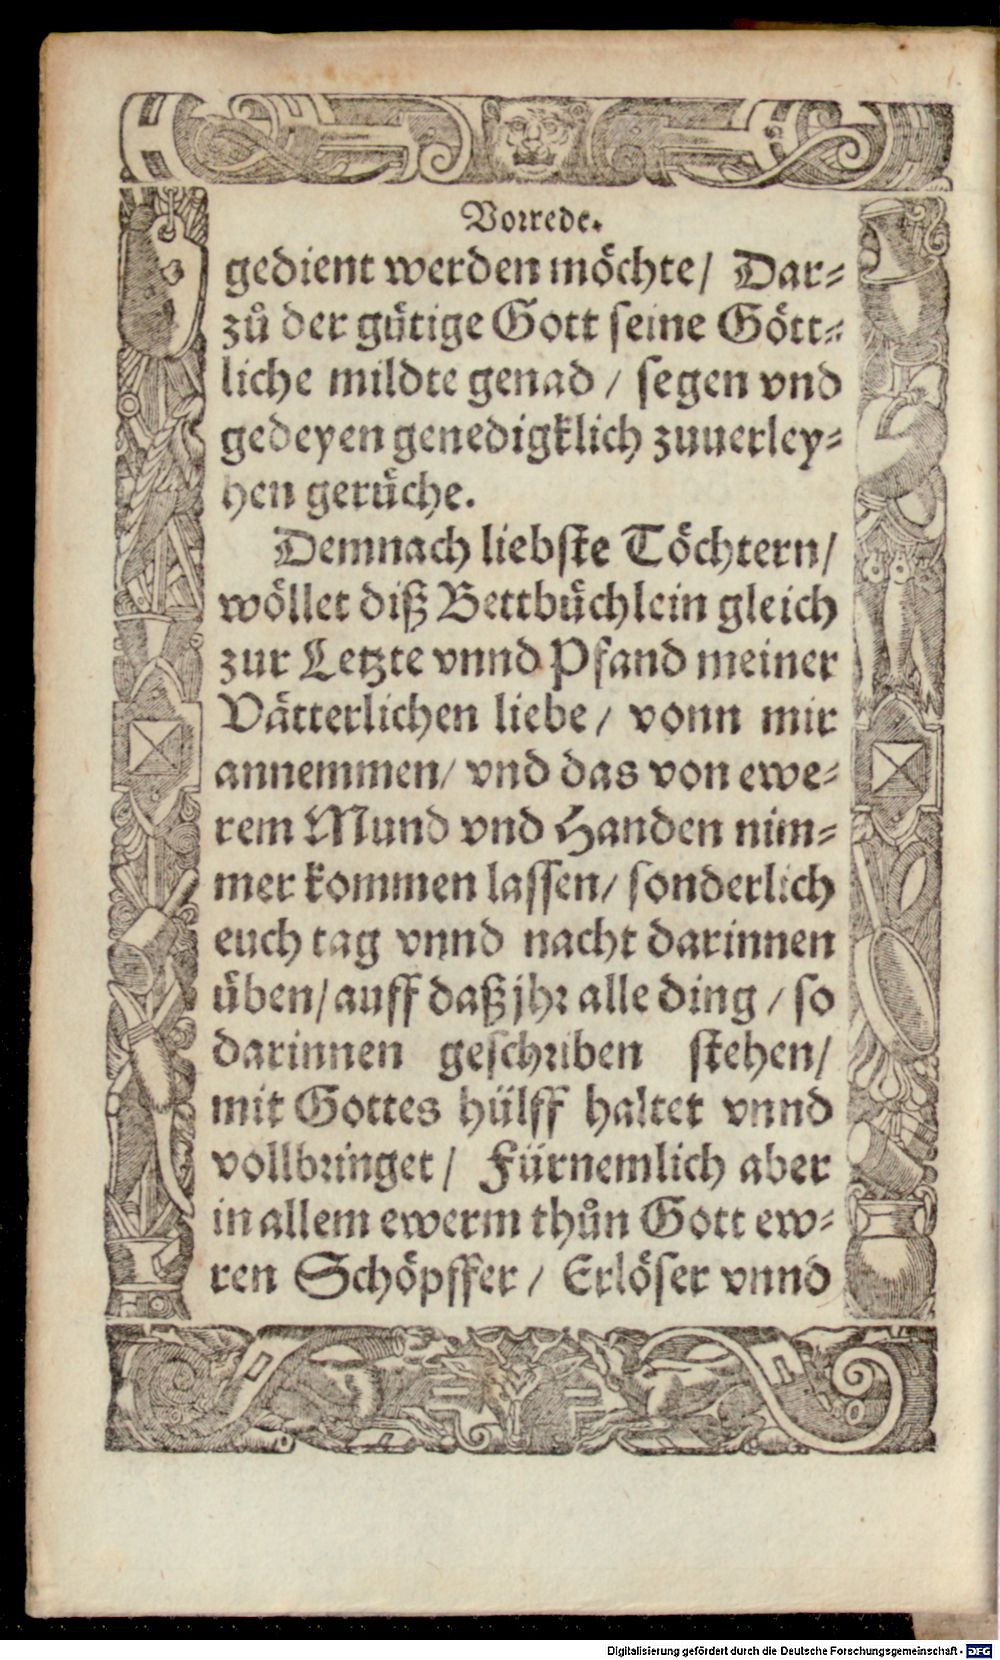 Vorrede.
gedient werden möchte/ Dar⸗
zů der gütige Gott seine Gött⸗
liche mildte genad / segen vnd
gedeyen genedigklich zuuerley⸗
hen gerüche.
Demnach liebste Töchtern/
wöllet diß Bettbüchlein gleich
zur Letzte vnnd Pfand meiner
Vätterlichen liebe / vonn mir
annemmen/ vnd das von ewe⸗
rem Mund vnd Handen nim⸗
mer kommen lassen/ sonderlich
euch tag vnnd nacht darinnen
üben/ auff daß jhr alle ding / so
darinnen geschriben stehen/
mit Gottes hülff haltet vnnd
vollbringet / Fürnemlich aber
in allem ewerm thůn Gott ew⸗
ren Schöpffer / Erlöser vnnd
Digitalisierung gefördert durch die Deutsche Forschungsgemeinschaft - DFG